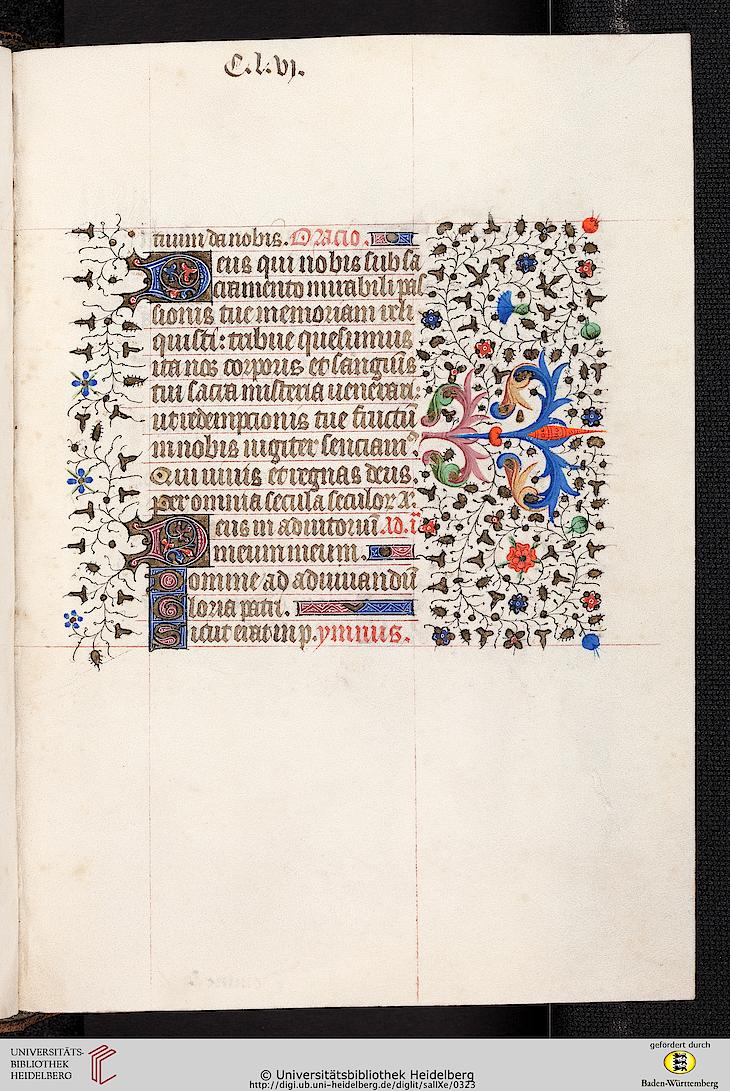 C.l.vj.
tuum da nobis. Oracio.
Deus qui nobis sub sa
cramento mirabili pas
sionis tue memoriam reli
quisti: tribue quesumus
ita nos corporis et sanguīs
tui sacra misteria uenerari:
ut redempcionis tue fructū
in nobis iugiter senciamꝰ
Qui uiuis et regnas deus.
per omnia secula seculoꝝ A.
Deus in adiutoriū Ad. i
meum meum.
Domine ad adiuuandū
Gloria patri.
Sicut erat in p. ymnus.
UNIVERSITÄTS-
BIBLIOTHEK
HEIDELBERG
© Universitätsbibliothek Heidelberg
http://digi.ub.uni-heidelberg.de/diglit/salIXe/0323
gefördert durch
Baden-Württemberg